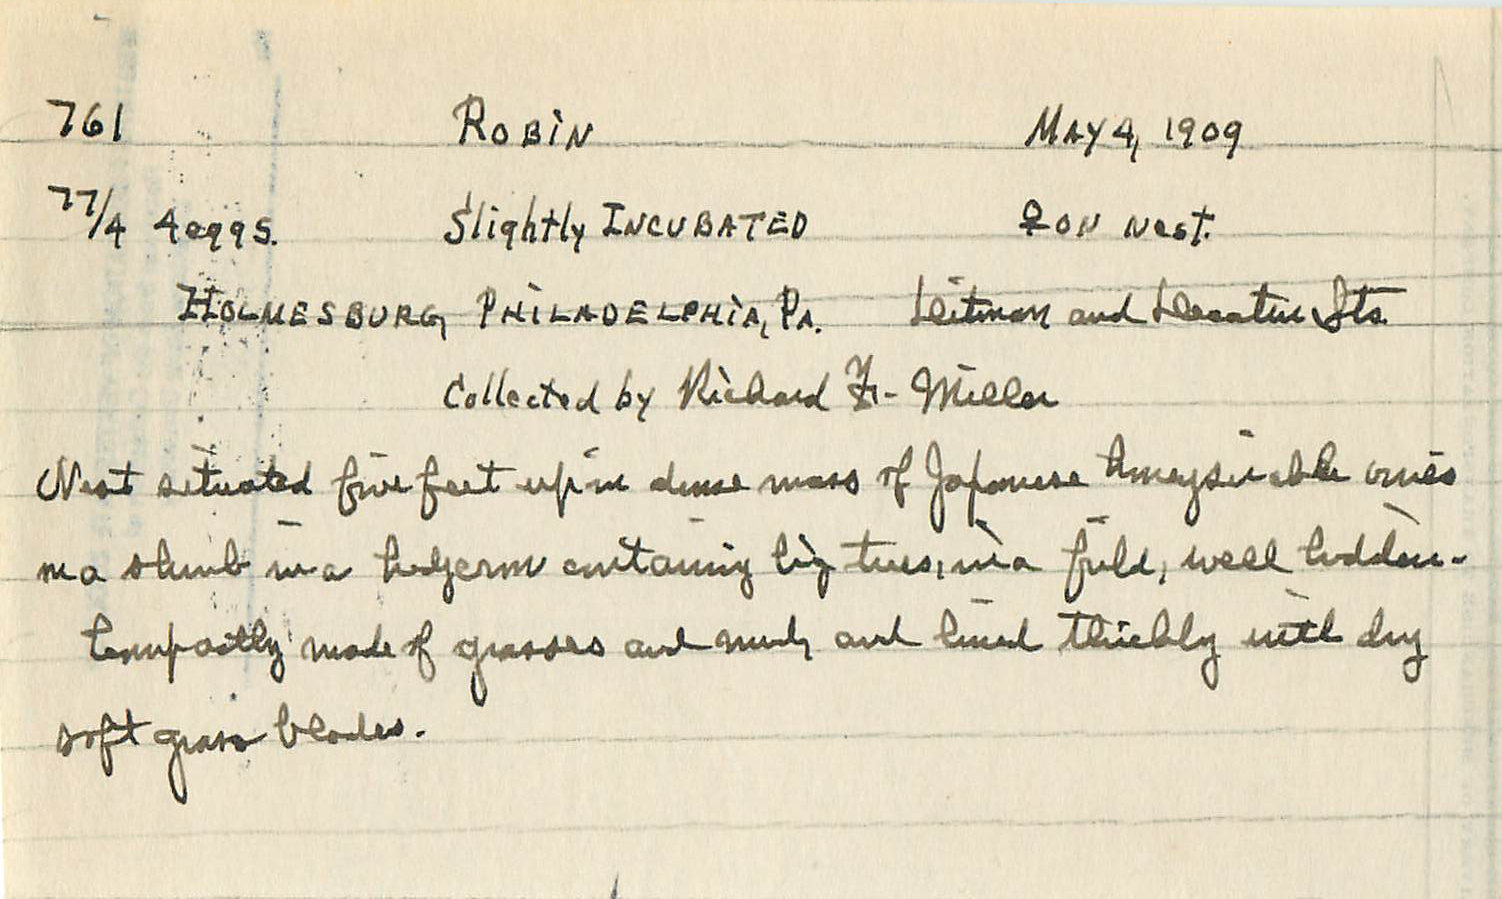 761 Robin May 4, 1909
77/4 4 eggs. Slightly Incubated ♀ on nest.
Holmesburg, Philadelphia, Pa. Leitman and Decatur Sts.
Collected by Richard F. Miller
Nest situated five feet up in dense mass of Japanese honeysuckle vines
in a shrub in a hedgerow containing big trees, in a field, well hidden.
Compactly made of grasses and mud, and lined thickly with dry
soft grass blades.